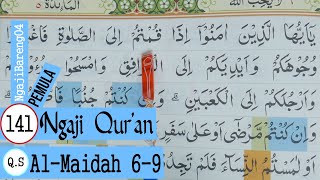 المائدة ٥
يٰٓاَيُّهَا الَّذِيْنَ اٰمَنُوْٓا اِذَا قُمْتُمْ اِلَى الصَّلٰوةِ فَاغْسِلُوْا
وُجُوْهَكُمْ وَاَيْدِيَكُمْ اِلَى الْمَرَافِقِ وَامْسَحُوْا
وَاَرْجُلَكُمْ اِلَى الْكَعْبَيْنِ وَاِنْ كُنْتُمْ جُنُبًا
وَاِنْ كُنْتُمْ مَّرْضٰٓى اَوْ عَلٰى سَفَرٍ
اَوْ لٰمَسْتُمُ النِّسَاۤءَ فَلَمْ تَجِدُوْا
NgajiBareng04
PEMULA
141 Ngaji Qur'an
Q.S Al-Maidah 6-9